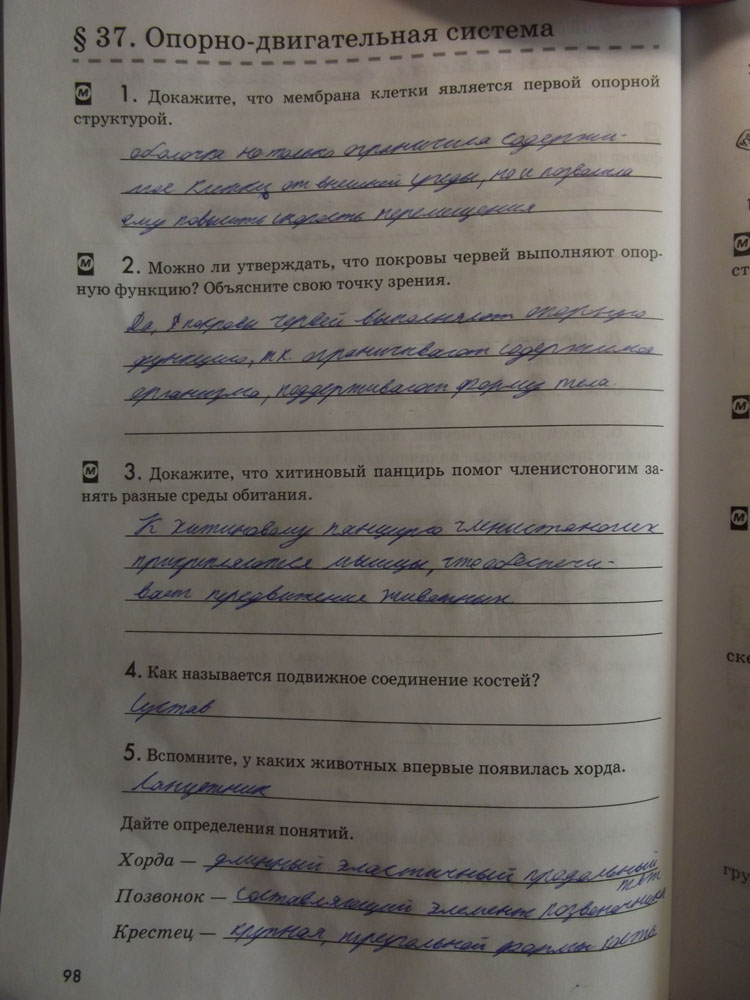 § 37. Опорно-двигательная система
М 1. Докажите, что мембрана клетки является первой опорной
структурой.
оболочка не только ограничила содержи-
мое клетки от внешней среды, но и позволила
ему повысить скорость перемещения
М 2. Можно ли утверждать, что покровы червей выполняют опор-
ную функцию? Объясните свою точку зрения.
Да, покровы червей выполняют опорную
функцию, т.к. ограничивают содержимое
организма, поддерживают форму тела.
М 3. Докажите, что хитиновый панцирь помог членистоногим за-
нять разные среды обитания.
К хитиновому панцирю членистоногих
прикрепляются мышцы, что обеспечи-
вает передвижение животных.
4. Как называется подвижное соединение костей?
Сустав
5. Вспомните, у каких животных впервые появилась хорда.
Ланцетник
Дайте определения понятий.
Хорда — длинный эластичный продольный
тяж
Позвонок — составляющий элемент позвоночника
Крестец — крупная, треугольной формы кость
98
М
ст
М
М
ске
гру